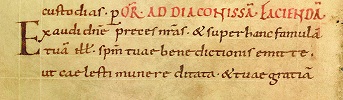 custodias. p OR. AD DIACONISSĀ FACIENDĀ
Exaudi dn̄e preces nr̄as. & super hanc famulā
tuā ill. sp̄m tuae benedictionis emitte.
ut caelesti munere ditata. & tuae gratiā